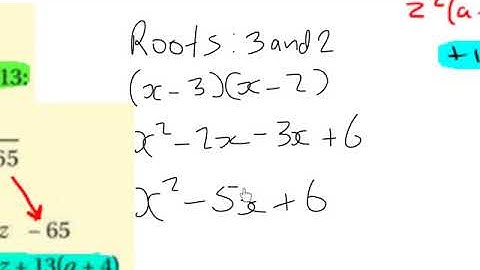 Roots: 3 and 2
(x - 3)(x - 2)
x² - 2x - 3x + 6
x² - 5x + 6
z²(a
13:
65
z - 65
z + 13(a + 4)